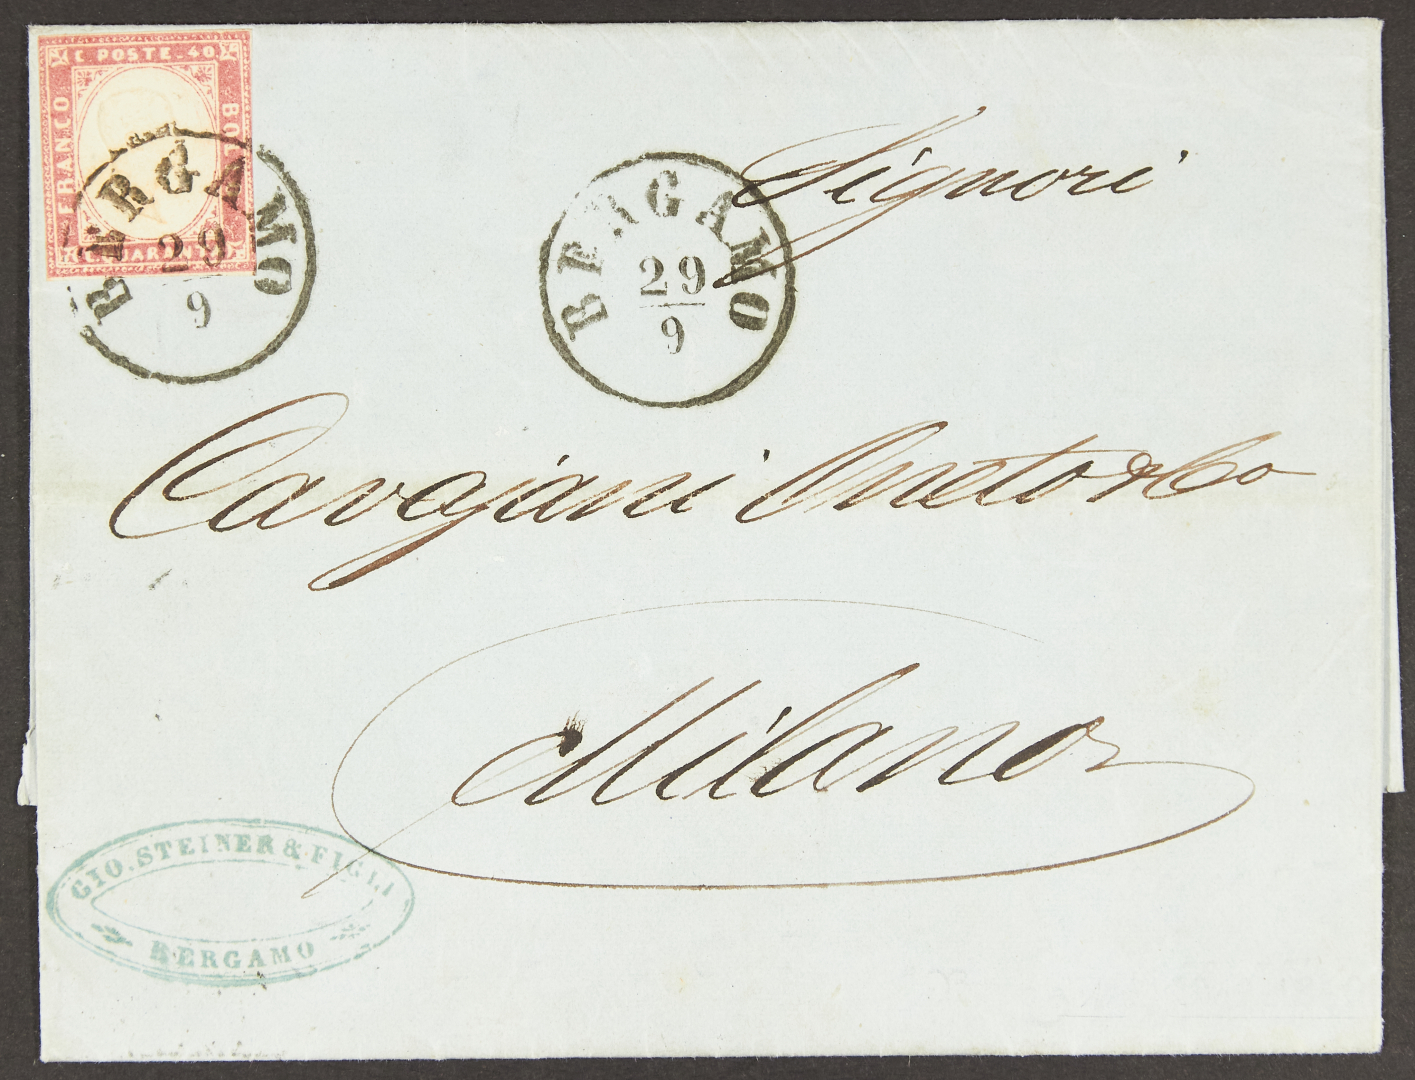 C. POSTE. 40
FRANCO
BOLLO
C. QUARANTA
BERGAMO
29
9
BERGAMO
29
9
Signori
Cavajani Oneto & Co
Milano
GIO. STEINER & FIGLI
BERGAMO